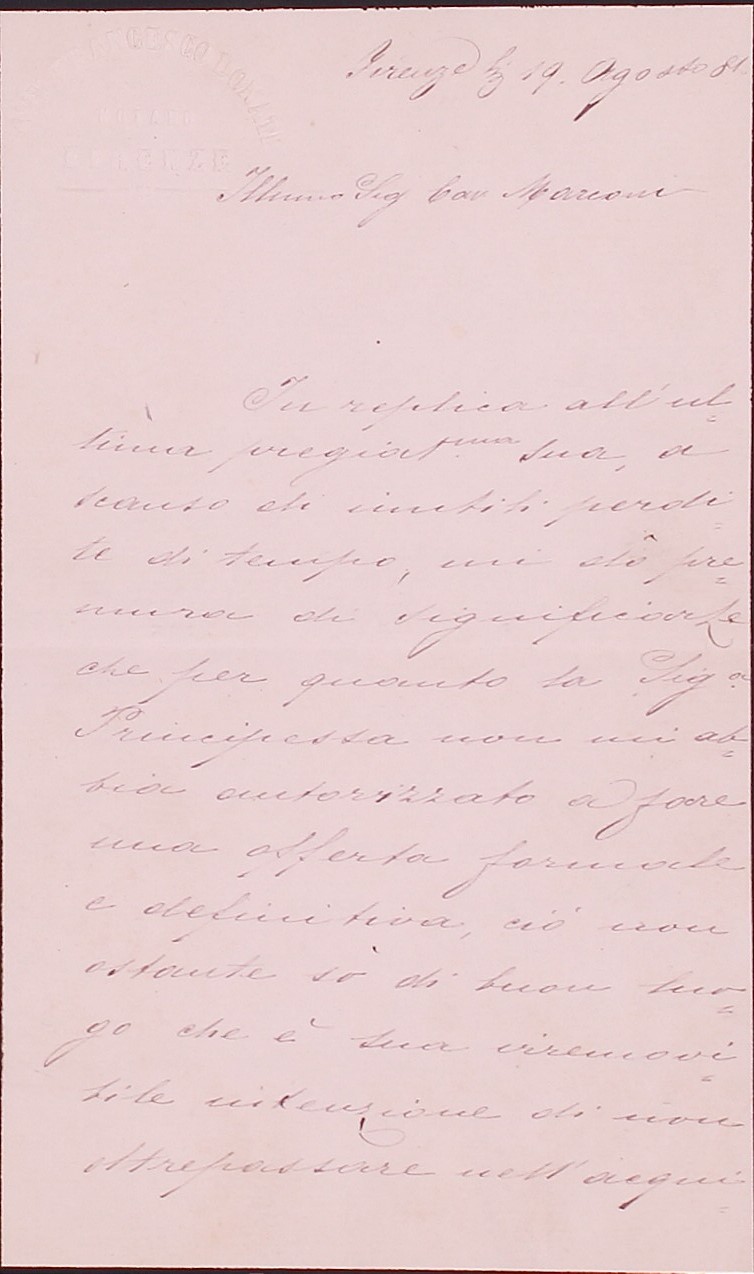 FRANCESCO DONATI
NOTARO
FIRENZE
Firenze li 19. Agosto 81
Illumo Sig Cav Marconi
In replica all' ul=
tima pregiatma sua, a
scanso di inutili perdi=
te di tempo, mi dò pre=
mura di significarLe
che per quanto la Siga
Principessa non mi ab=
bia autorizzato a fare
una offerta formale
e definitiva, ciò non
ostante sò di buon luo=
go che è sua irremovi=
bile intenzione di non
oltrepassare nell' acqui=